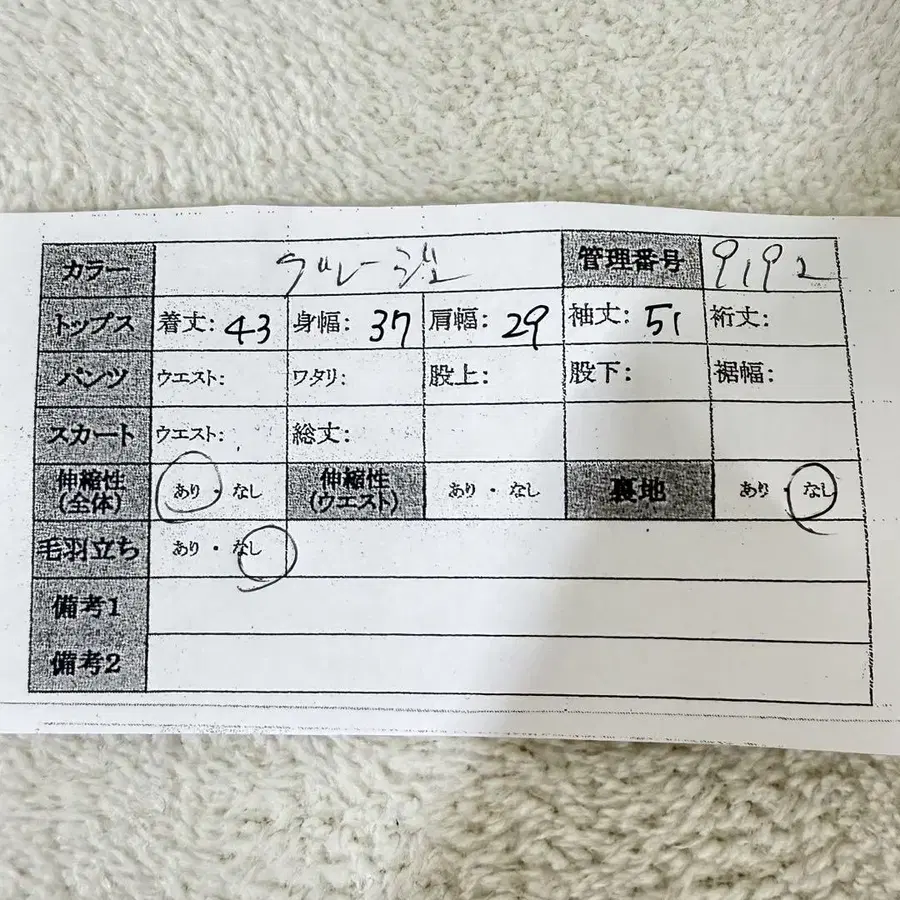 カラー グレージュ 管理番号 9192
トップス 着丈: 43 身幅: 37 肩幅: 29 袖丈: 51 裄丈:
パンツ ウエスト: ワタリ: 股上: 股下: 裾幅:
スカート ウエスト: 総丈:
伸縮性(全体) あり・なし 伸縮性(ウエスト) あり・なし 裏地 あり・なし
毛羽立ち あり・なし
備考1
備考2